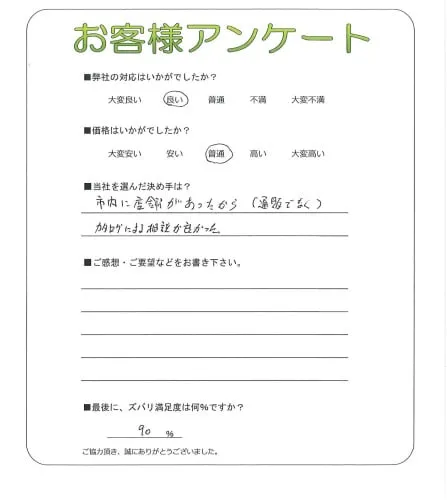 お客様アンケート
■弊社の対応はいかがでしたか？
大変良い 良い 普通 不満 大変不満
■価格はいかがでしたか？
大変安い 安い 普通 高い 大変高い
■当社を選んだ決め手は？
市内に店舗があったから (通販でなく)
カタログによる相談が良かった。
■ご感想・ご要望などをお書き下さい。
■最後に、ズバリ満足度は何％ですか？
90 %
ご協力頂き、誠にありがとうございました。